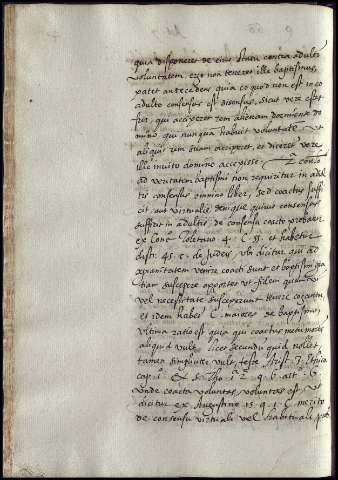 quia disponeret de eius statu contra adulti
voluntatem, ergo non teneret ille baptismus,
patet antecedens, quia eo quod non est in eo
adulto consensus est dissensus, sicut vere esset
fur, qui acciperet rem alienam dormiente do
mino, qui nunquam habuit voluntatē ut
aliquis rem suam acciperet, et diceret vere
ille invito domino accepisse.
ad veritatem baptismi non requiritur in adul
tis consensus omnino liber, sed coactus suffi
cit aut virtualis, denique quivis consensus
sufficit in adultis, de consensu coacto probatur
ex Conc. Toletano 4. C. 55. et habetur
distr. 45. c. de Judeis, ubi dicitur, qui ad
xpianitatem venire coacti sunt et baptismi gra
tiam suscepere oportet ut fidem quam vi
vel necessitate susceperunt tenere cogantur,
et idem habet C. maiores de baptismo,
ultima ratio est quia qui coactus metu mortis
aliquid vult, licet secundum quid nollet
tamen simpliciter vult, teste Arist. 3. Ethic.
cap. 1. & S. Tho. 1. 2. q. 6. art. 6.
unde coacta voluntas, voluntas est ut
dicitur ex Augustino 15. q. 1. C. merito
de consensu virtuali vel habituali